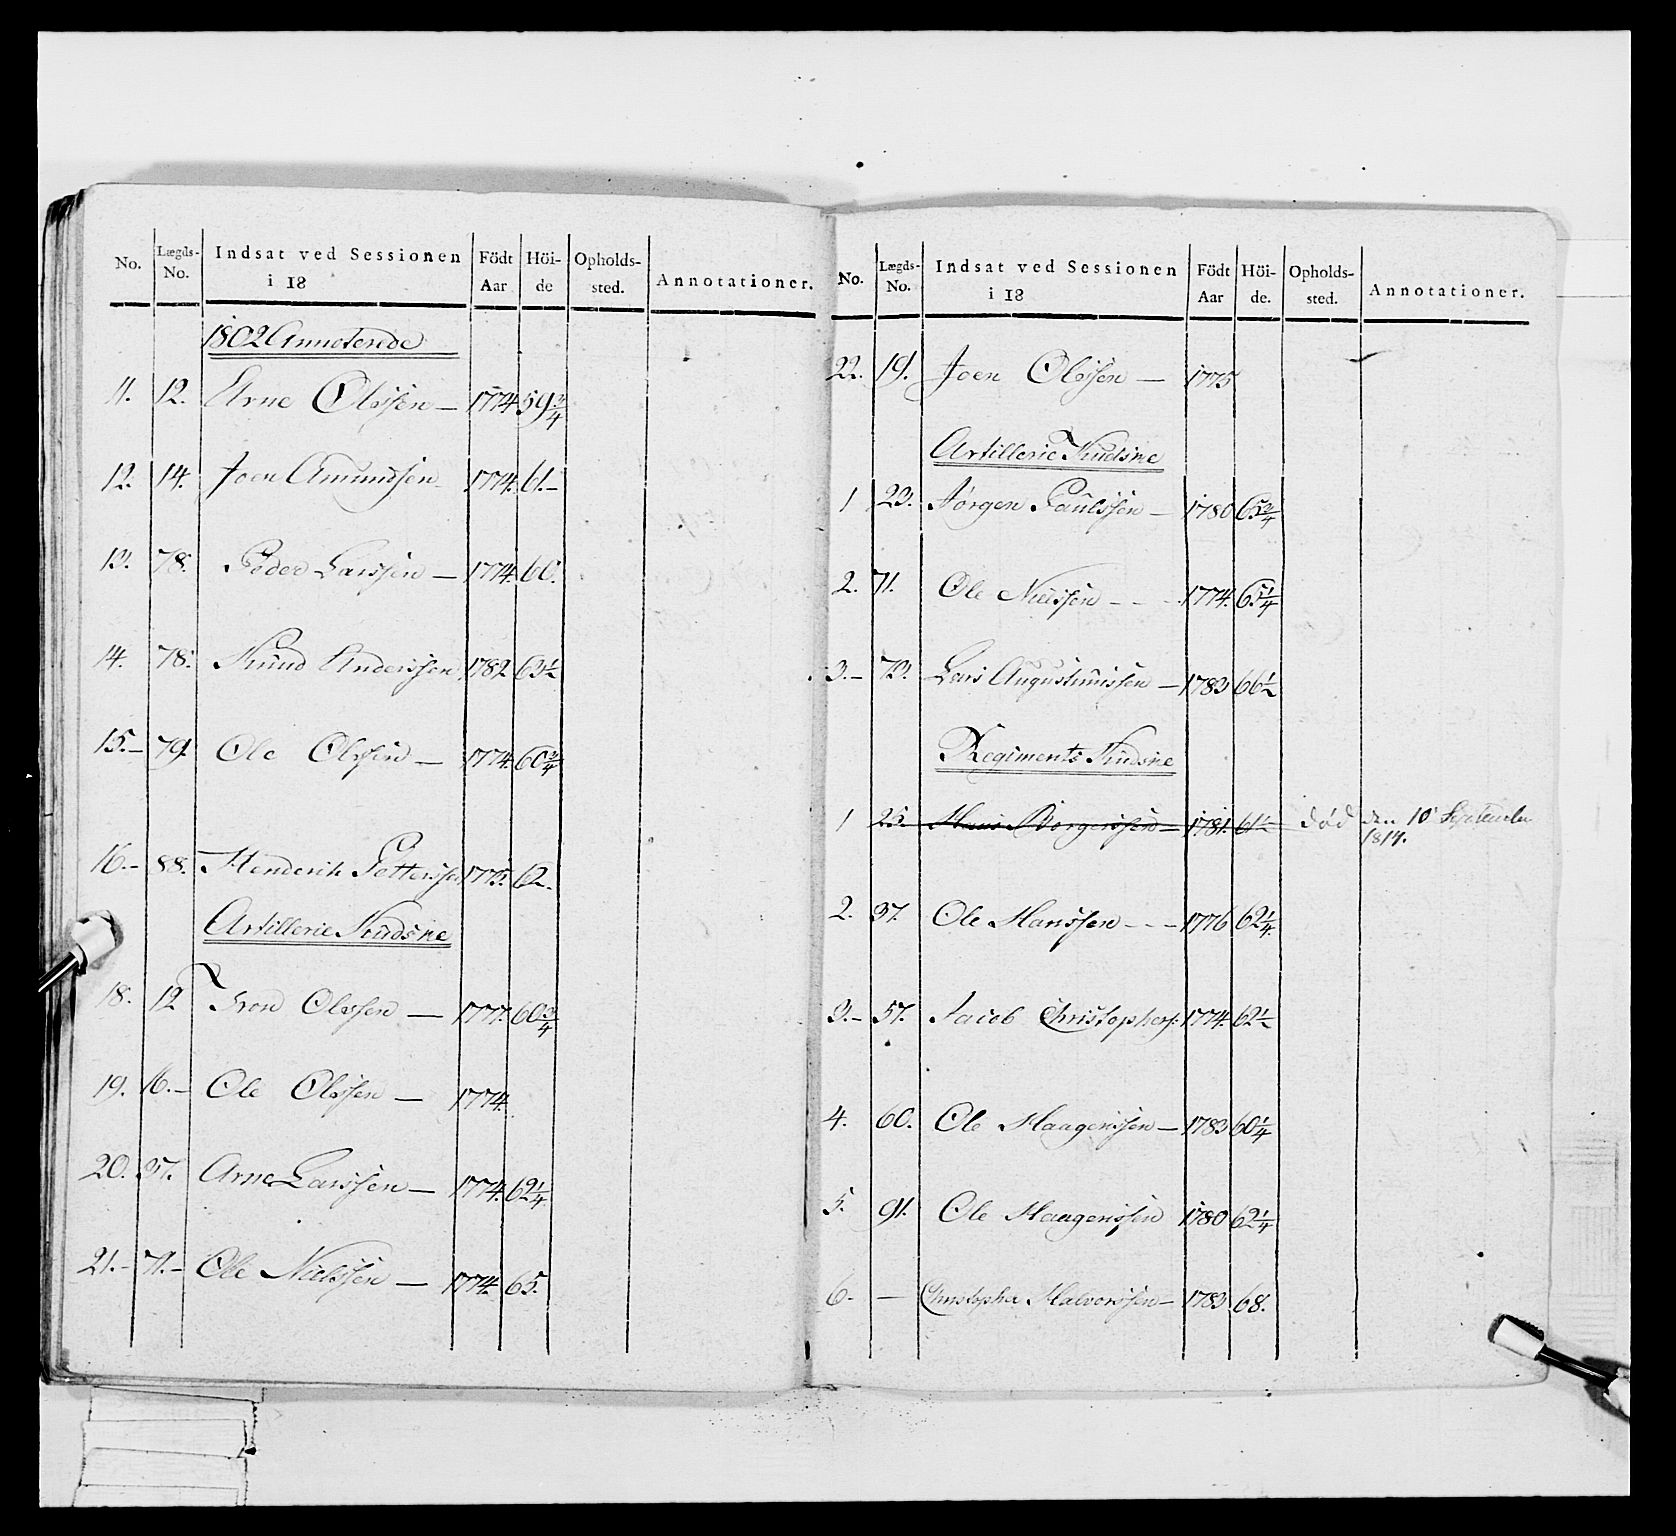 No. Lægds-No. Indsat ved Sessionen i 18 Födt Aar Höi-de Opholds-sted. Annotationer.
1802 Annoterede
11. 12. Arne Olssen — 1774 59 3/4
12. 14. Joen Amundsen 1774. 61. –
13. 78. Peder Larssen — 1774. 60.
14. 78. Knud Anderssen 1782 63 1/2
15. – 79. Ole Olssen — 1774. 60 3/4
16. – 88. Henderich Petterssen 1775. 62.
Artillerie Kudsne
18. 12 Tron Olssen — 1777. 60 3/4
19. 16. – Ole Olssen — 1774.
20. 37. Arne Larssen — 1774. 62 1/4
21. – 71. – Ole Nielssen — 1774. 65.
No. Lægds-No. Indsat ved Sessionen i 18 Födt Aar Höi-de. Opholds-sted. Annotationer.
22. 19. Joen Olssen — 1775
Artillerie Kudsne
1 23. Jørgen Paulssen — 1780 65 3/4
2. 71. Ole Nielssen - - - 1774. 65 1/4
3. – 73. Lars Augustinussen — 1783 66 1/2
Regiments Kudsne
1 25. Hans Borgerssen — 1781. 61 1/2 død den 10 September
1814.
2. 37. Ole Hanssen - - - 1776 62 1/4
3. – 57. Jacob Christophers: 1774. 62 1/2
4. 60. Ole Haagenssen — 1783 60 1/4
5. 91. Ole Haagenssen 1780 62 1/4
6. – — Christopher Halvorssen — 1783 68.